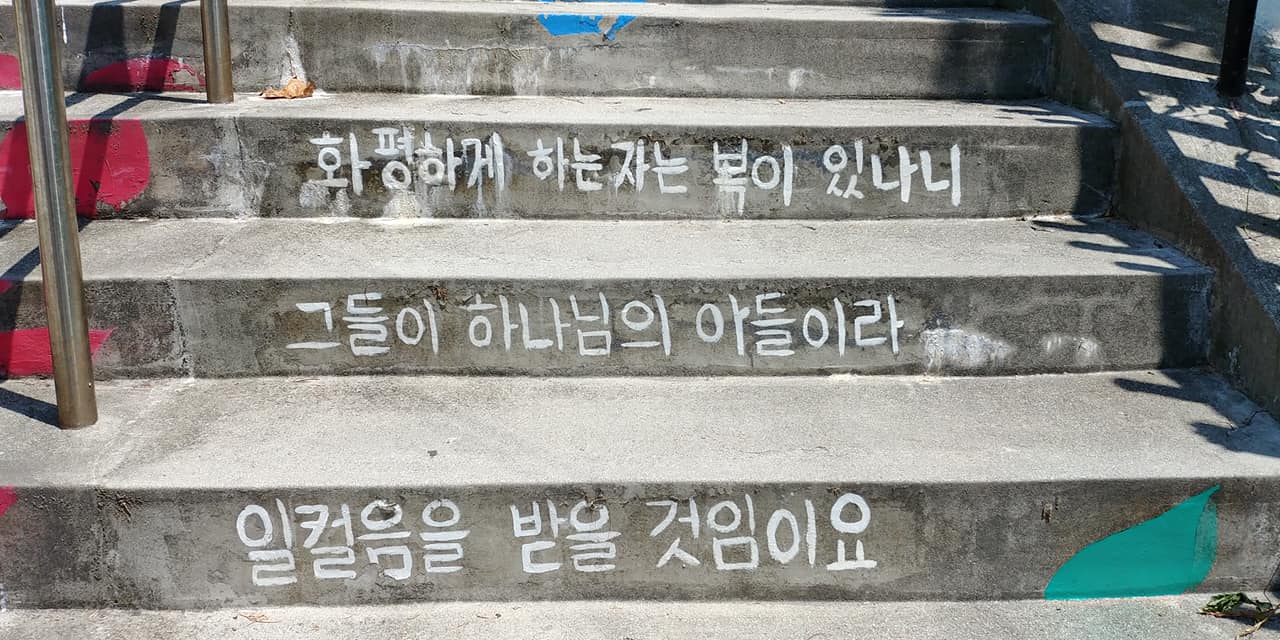 화평하게 하는자는 복이 있나니
그들이 하나님의 아들이라
일컬음을 받을 것임이요